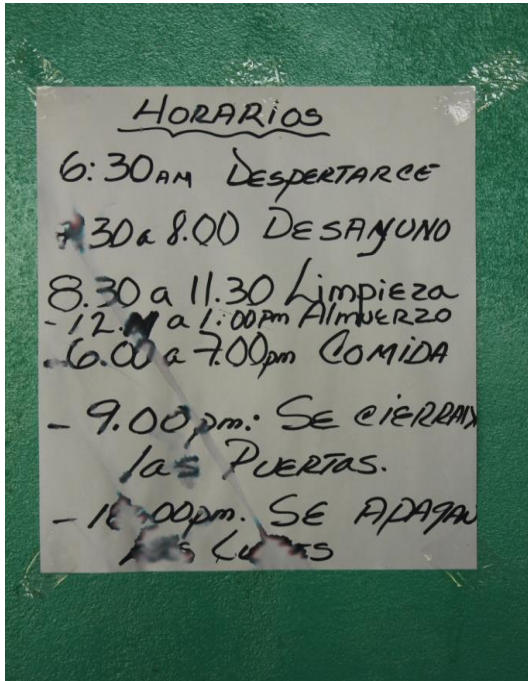 HORARIOS
6:30AM DESPERTARCE
30 a 8.00 DESAYUNO
8.30 a 11.30 Limpieza
-12. a 1:00pm ALMUERZO
-6.00 a 7.00pm COMIDA
- 9.00pm: SE CIERRAN
las PUERTAS.
- 00pm. SE APAGAN